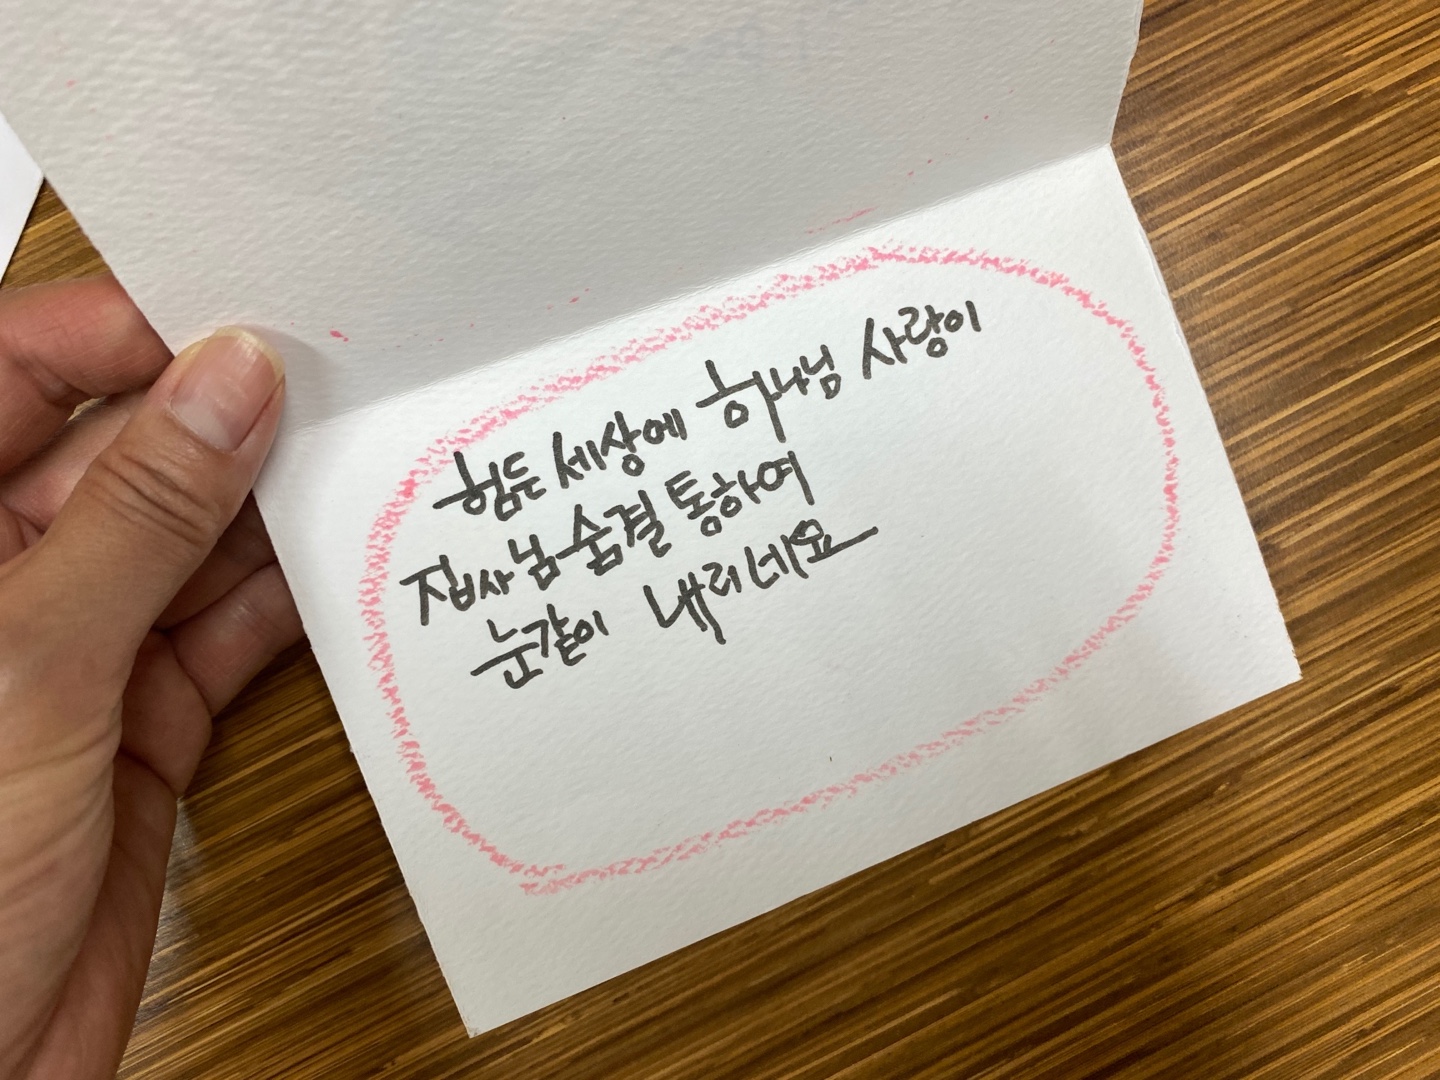 힘든 세상에 하나님 사랑이
집사님 숨결 통하여
눈같이 내리네요